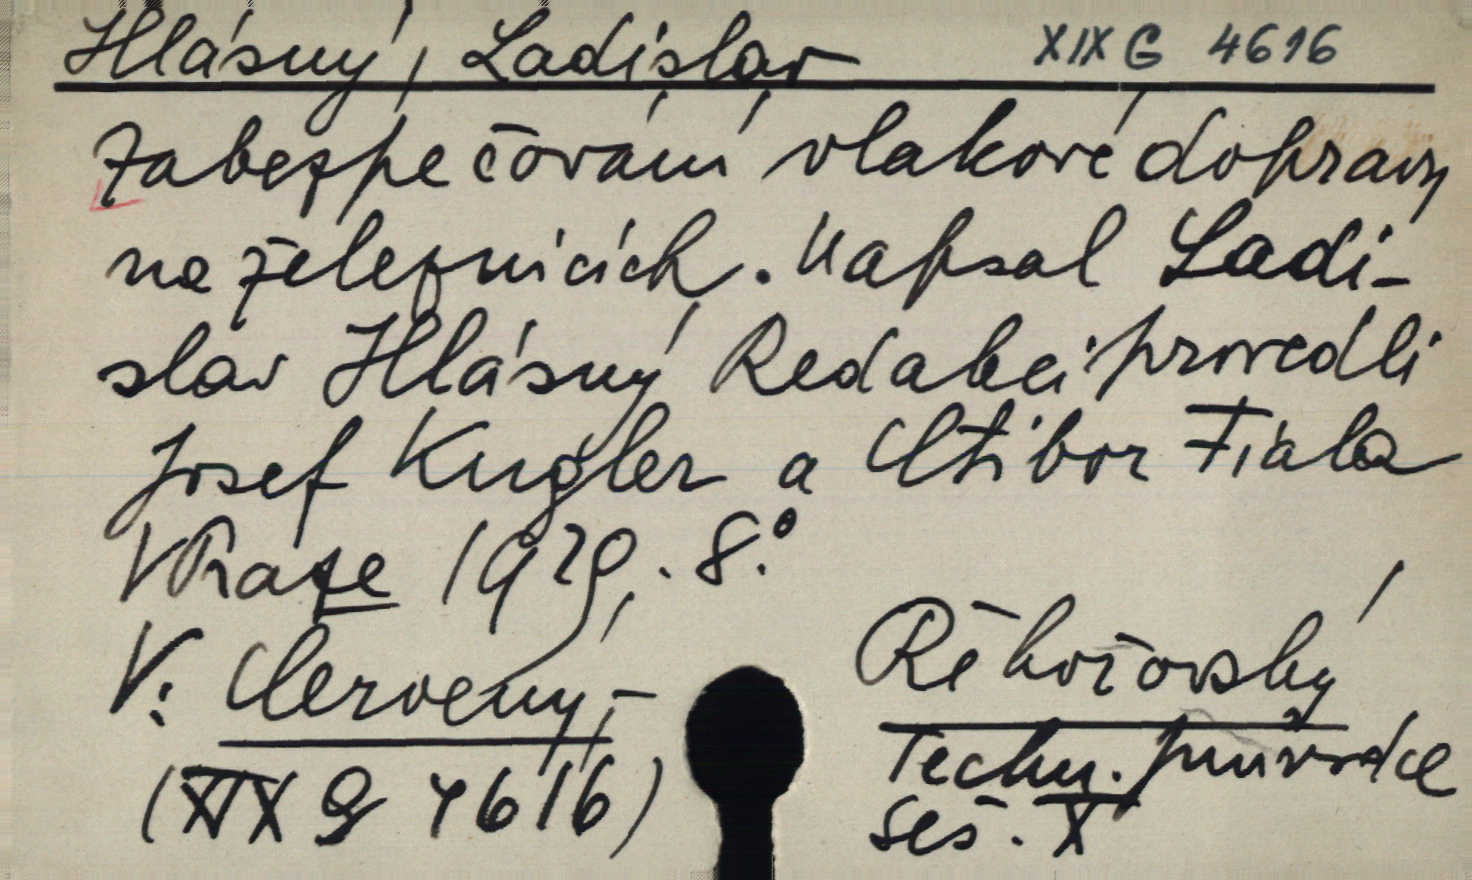 Hlásný, Ladislav XIX G 4616
Zabezpečování vlakové dopravy
na železnicích. Napsal Ladi-
slav Hlásný Redakci provedli
Josef Kugler a Ctibor Fiala
V Praze 1929. 8.°
V: Červený,- Řehořovský
Techn. průvodce
(XIX G 4616) seš. X